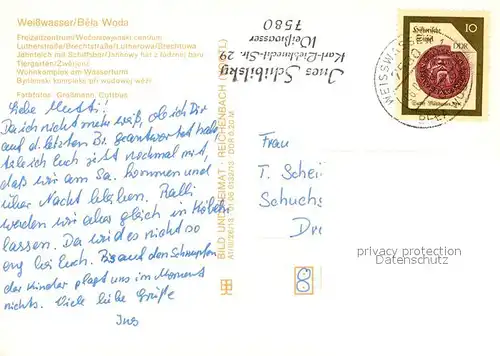 Weißwasser/Běla Woda
Freizeitzentrum/Wočerstwjenski centrum
Lutherstraße/Brechtstraße/Lutherowa/Brechtowa
Jahnteich mit Schiffsbar/Jahnowy hat z łódźnej baru
Tiergarten/Zwěrjenc
Wohnkomplex am Wasserturm
Bydlenski kompleks při wodowej wěži
Farbfotos Großmann, Cottbus
Liebe Mutti!
Da ich nicht mehr weiß, ob ich Dir
auf d. letzten Br. geantwortet habe
teile ich Euch jetzt nochmal mit,
daß wir am Sa. kommen und
über Nacht bleiben. Ralli
werden wir aber gleich in
lassen. Da wird es nicht so
eng bei Euch. Bis auf den Schnupfen
der Kinder plagt uns im Moment
nichts. Viele liebe Grüße
Ines
BILD UND HEIMAT · REICHENBACH (VOGTL)
DDR 0,20 M
Ines Schibilsky
Karl-Liebknecht-Str. 29
Weißwasser
7580
WEISSWASSER
Historische
Siegel
DDR
10
Frau
T. Schei
Schuchs
Dre
privacy protection
Datenschutz